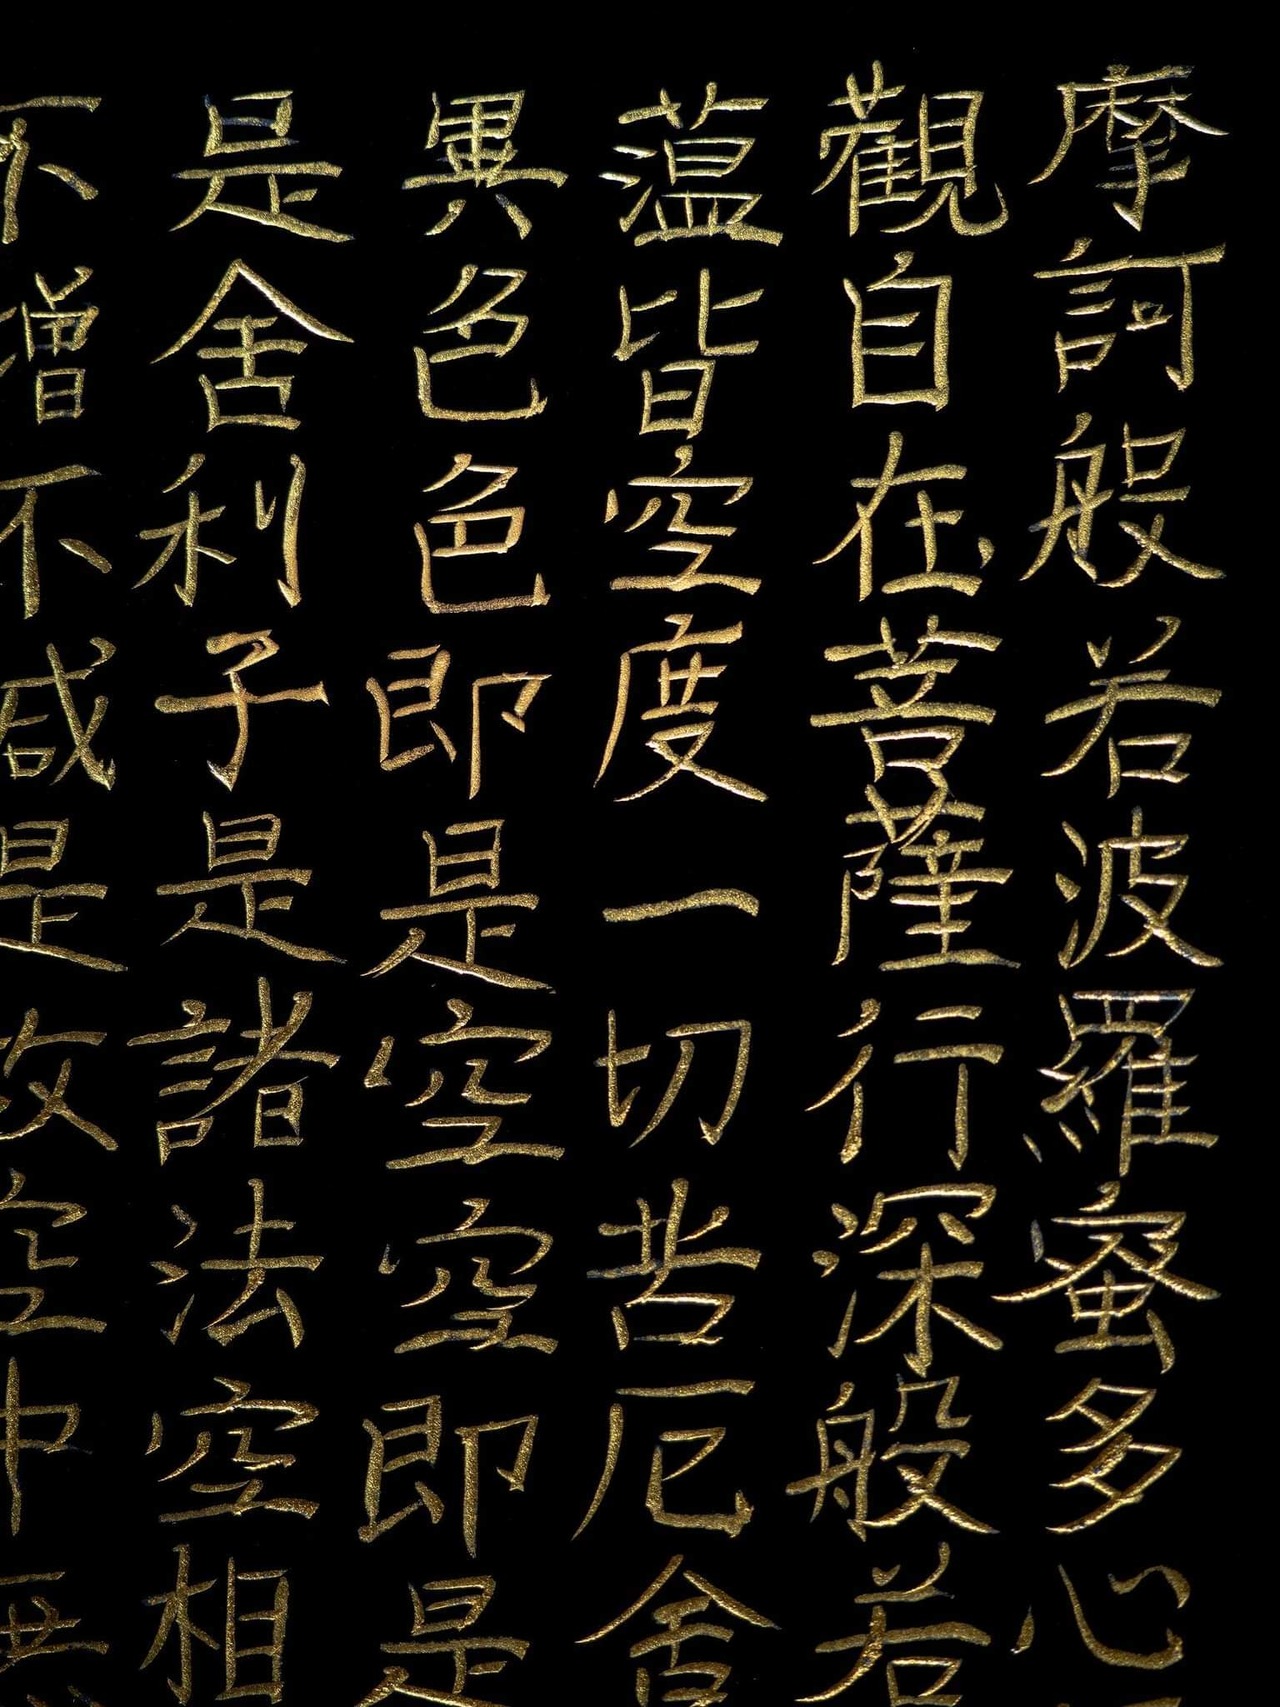 摩訶般若波羅蜜多心
觀自在菩薩行深般若
蘊皆空度一切苦厄舍
異色色即是空空即是
是舍利子是諸法空相
不增不減是故空中無